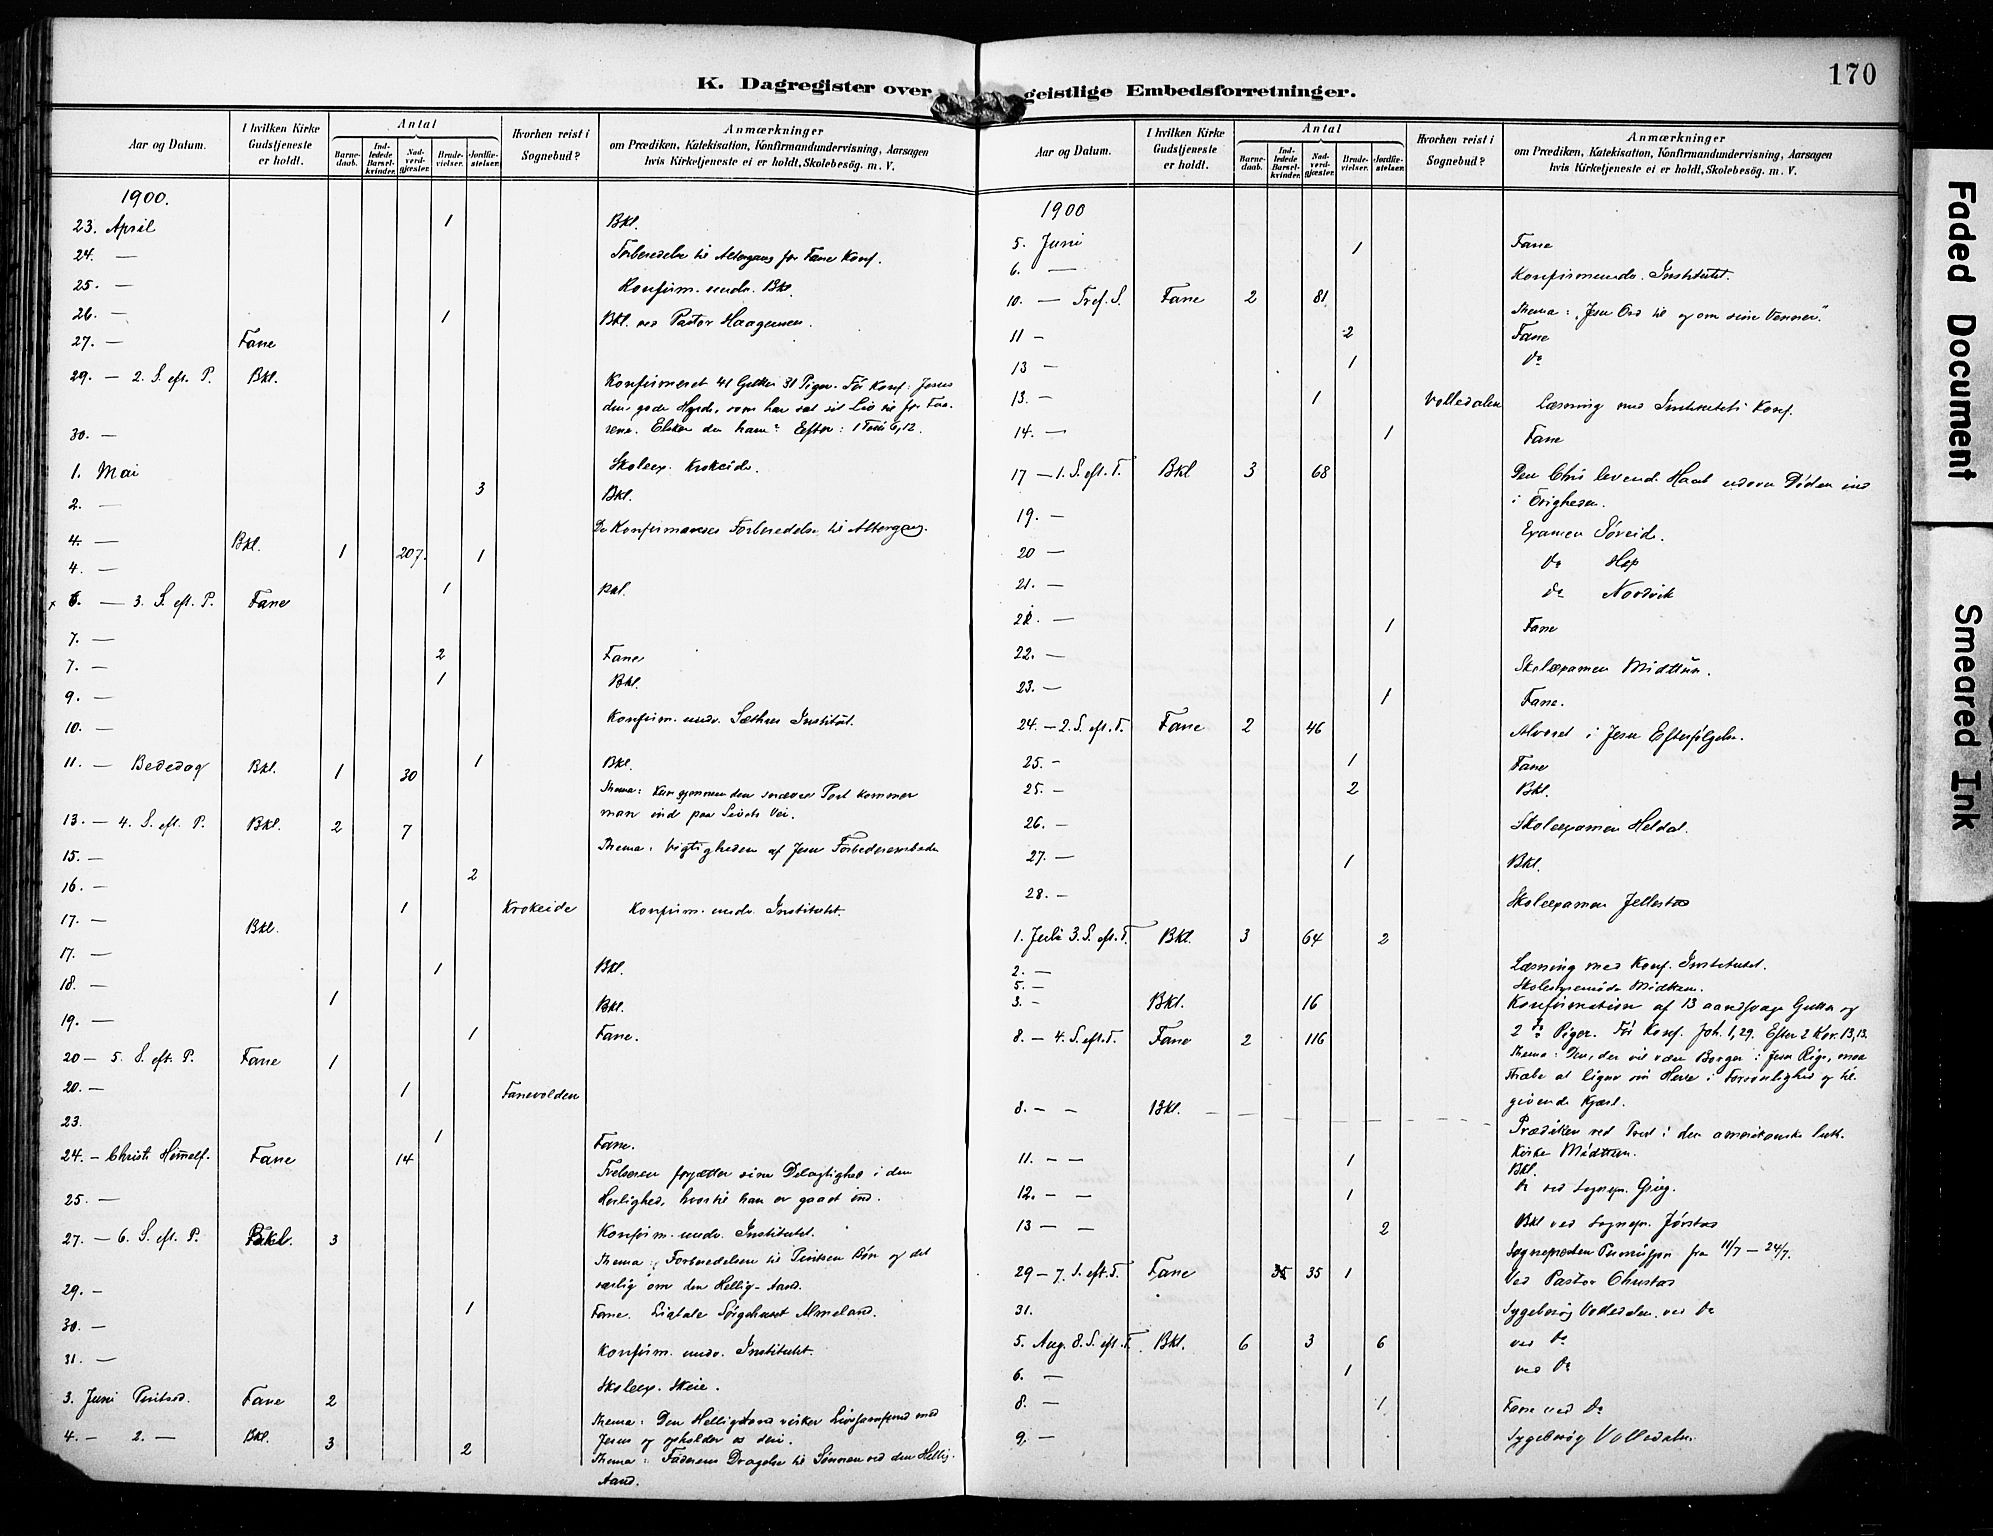 K. Dagregister over geistlige Embedsforretninger.
170
Faded Document
Smeared Ink
Aar og Datum.
I hvilken Kirke Gudstjeneste er holdt.
Antal
Barnedaab.
Indledede Barselkvinder.
Nadverdgjæster.
Brudevielser.
Jordfæstelser.
Hvorhen reist i Sognebud?
Anmærkninger
om Prædiken, Katekisation, Konfirmandundervisning, Aarsagen
hvis Kirketjeneste ei er holdt, Skolebesøg. m. V.
1900.
23. April 1 Bkl.
24. — Forberedelse til Altergang for Fane Konf.
25. — Konfirm. underv. Bkl.
26. — 1 Bkl. ved Pastor Haagensen.
27. — Fane
29. — 2. S. eft. P. Bkl. Konfirmeret 41 Gutter 31 Piger. Før Konf: Jesus
den gode Hyrde, som har sat sit Liv til for Faa-
rene. Elsker du ham? Efter: 1 Tim 6,12.
30. — Skoleex. Krokeide.
1. Mai 3 Bkl.
2. — De Konfirmeredes Forberedelse til Altergang.
4. — Bkl. 1 207. 1
4. —
6. — 3. S. eft. P. Fane 1 Bkl.
7. — 2 Fane
7. — 1 Bkl.
9. — Konfirm. underv. Sæthres Institut.
10. — 1 Bkl.
11. — Bededag Bkl. 1 30 Thema: Kun gjennem den snævre Port kommer
man ind paa Livets Vei.
13. — 4. S. eft. P. Bkl. 2 7 Thema: Vigtigheden af Jesu Forbederembede
15. — 2
16. — 1 Krokeide Konfirm. underv. Institutet.
17. — Bkl.
17. — 1 Bkl.
18. — 1 Bkl.
19. — 1 Fane.
20 — 5. S. eft. P. Fane 1
20. — 1 Fanevolden
23. 1 Fane.
24. — Christi Himmelf. Fane 14 Frelseren forjætter sine Delagtighed i den
Herlighed, hvortil han er gaaet ind.
25. — Konfirm. underv. Institutet.
27. — 6. S. eft. P. Bkl. 3 Thema: Forberedelsen til Pintsen Bøn og det
særlig om den Hellig-Aand.
29. — 1 Fane. Ligtale Sørgehuset Almeland.
30. — Konfirm. underv. Institutet.
31. — Skoleex. Skeie.
3. Juni Pintsed. Fane 2 Thema: Den Helligaand virker Livssamfund med
Jesus og opholder os deri.
4. — 2. — Bkl. 3 2 Thema: Faderens Dragelse til Sønnen ved den Hellig-
Aand.
Aar og Datum.
I hvilken Kirke Gudstjeneste er holdt.
Antal
Barnedaab.
Indledede Barselkvinder.
Nadverdgjæster.
Brudevielser.
Jordfæstelser.
Hvorhen reist i Sognebud?
Anmærkninger
om Prædiken, Katekisation, Konfirmandundervisning, Aarsagen
hvis Kirketjeneste ei er holdt, Skolebesøg. m. V.
1900
5. Juni 1 Fane
6. — Konfirmunderv. Institutet.
10. — Tref. S. Fane 2 81 Thema: "Jesu Ord til og om sine Venner."
11 — 2 Fane
13 — 1 do
13. — 1 Volledalen Læsning med Institutets Konf.
14. — 1 Fane
17 — 1. S. eft. T. Bkl 3 68 Den Chri levende Haab udover Døden ind
i Evigheden.
19. — Examen Søreide.
20 — do Hop
21. — do Nordvik
22. — 1 Fane
22. — Skoleexamen Midttun.
23. — 1 Fane.
24. — 2. S. eft. T. Fane 2 46 Alvoret i Jesu Efterfølgelse.
25. — 1 Fane
25. — 2 Bkl.
26. — Skoleexamen Heldal.
27. — 1 Bkl.
28. — Skoleexamen Jellestad
1. Juli 3. S. eft. T. Bkl. 3 64 2
2. — Læsning med Konf. Institutet.
5. — Skolestyremøde Midttun.
3. — Bkl. 16 Konfirmation af 13 aandssvage Gutter og
2 do Piger. Før Konf. Joh. 1,29. Efter 2 Kor. 13,13.
8. — 4. S. eft. T. Fane 2 116 Thema: Den, der vil være Borger i Jesu Rige, maa
stræbe at ligne sin Herre i Forsonlighed og til-
givende Kjærl.
8. — — Bkl. Prædiken ved Prest i den amerikanske luth.
Kirke Midttun.
11. — — 1 Bkl.
12. — — 1 do ved Sognepr. Grieg.
13 — — 2 Bkl ved Sognepr. Jørstad
Sognepresten fra 11/7 — 24/7.
29 — 7. S. eft. T. Fane 35 35 1 Ved Pastor
31. Sygebesøg Volledalen ved do
5. Aug. 8. S. eft. T. Bkl. 6 3 6 ved do
6. — 1 ved do
8. — 1 Fane ved do
9. — Sygebesøg Volledalen